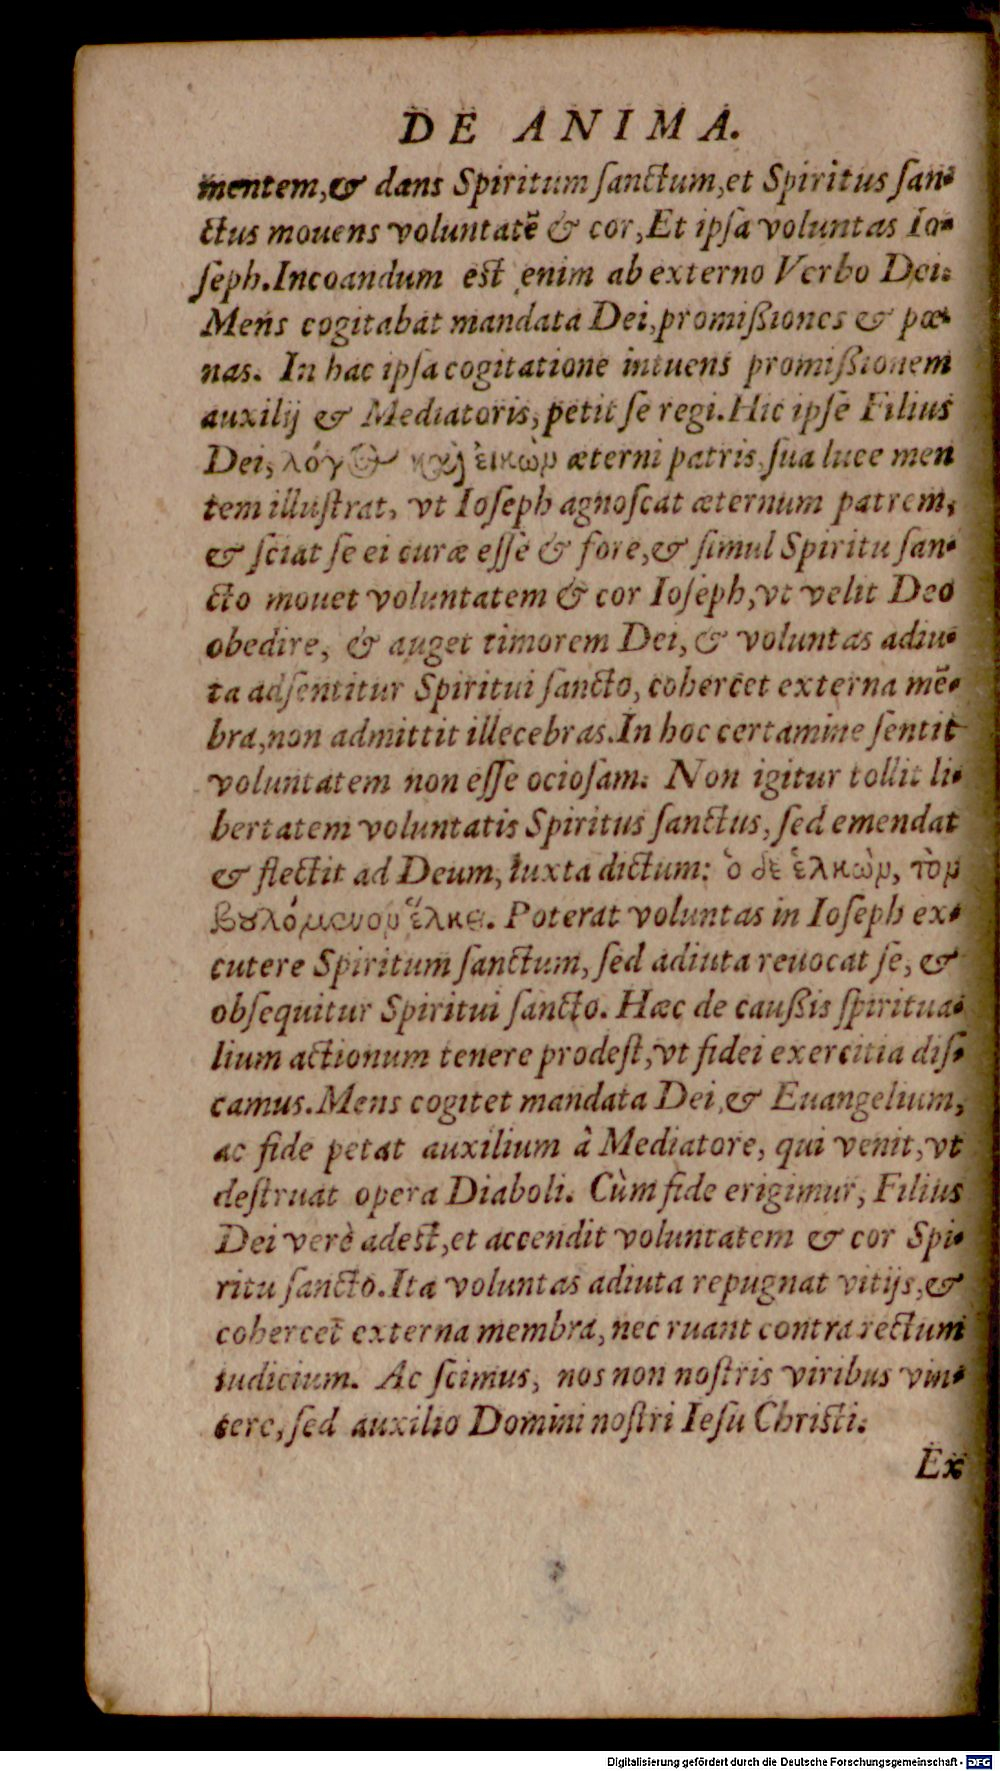 DE ANIMA.
mentem,& dans Spiritum ſanctum,et Spiritus ſan-
ctus mouens voluntatẽ & cor,Et ipſa voluntas Io-
ſeph.Incoandum est enim ab externo Verbo Dei.
Mens cogitabat mandata Dei,promißiones & pœ-
nas. In hac ipſa cogitatione intuens promißionem
auxilij & Mediatoris, petit ſe regi.Hic ipſe Filius
Dei, λόγος καὶ ἐικὼν æterni patris,ſua luce men
tem illuſtrat, vt Ioſeph agnoſcat æternum patrem,
& ſciat ſe ei curæ eſſe & fore,& ſimul Spiritu ſan-
cto mouet voluntatem & cor Ioſeph,vt velit Deo
obedire, & auget timorem Dei, & voluntas adiu-
ta adſentitur Spiritui ſancto, cohercet externa mẽ-
bra,non admittit illecebras.In hoc certamine ſentit
voluntatem non eſſe ocioſam. Non igitur tollit li-
bertatem voluntatis Spiritus ſanctus, ſed emendat
& flectit ad Deum, iuxta dictum: ὁ δὲ ἕλκων, τὸν
βȣλόμενον ἕλκει. Poterat voluntas in Ioſeph ex-
cutere Spiritum ſanctum, ſed adiuta reuocat ſe, &
obſequitur Spiritui ſancto. Hæc de caußis ſpiritua-
lium actionum tenere prodeſt,vt fidei exercitia diſ-
camus.Mens cogitet mandata Dei,& Euangelium,
ac fide petat auxilium à Mediatore, qui venit,vt
deſtruat opera Diaboli. Cùm fide erigimur, Filius
Dei verè adest,et accendit voluntatem & cor Spi-
ritu ſancto.Ita voluntas adiuta repugnat vitijs,&
cohercet externa membra, nec ruant contra rectum
iudicium. Ac ſcimus, nos non noſtris viribus vin-
cere, ſed auxilio Domini noſtri Ieſu Chriſti.
Ex
Digitalisierung gefördert durch die Deutsche Forschungsgemeinschaft - DFG